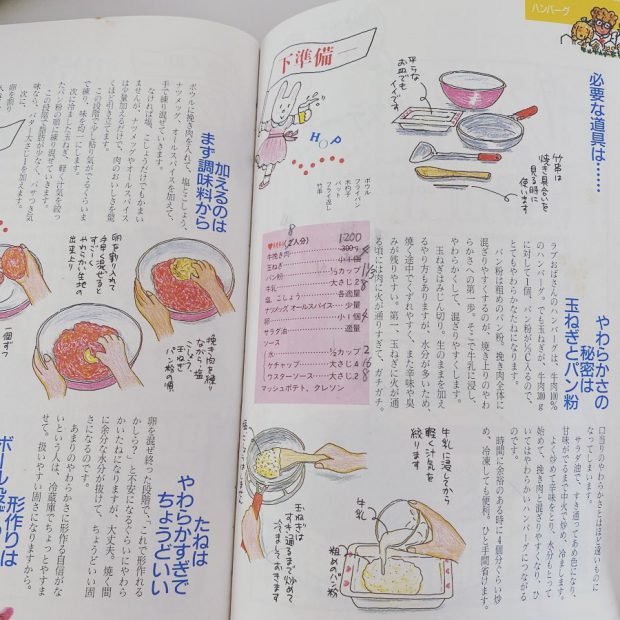 ハンバーグ
必要な道具は……
下準備一
平らな
お皿でも
イイです
竹串は
焼き具合いを
見る時に
使います
HOP
ボウル
フライパン
木杓子
バット
フライ返し
竹串
8
1200
(2人分)
牛挽き肉
300g
玉ねぎ
小1個
4
パン粉
⅓カップ
牛乳
大さじ2
8
塩、こしょう
各適量
ナツメッグ、オールスパイス
少量
卵
小1個
4
サラダ油
適量
ソース
水
½カップ
2
ケチャップ
大さじ4
16
ウスターソース
大さじ2
8
マッシュポテト、クレソン
やわらかさの
秘密は
玉ねぎとパン粉
ラブおばさんのハンバーグは、牛肉100%
のハンバーグ。でも玉ねぎが、牛肉300g
に対して1個、パン粉が⅓C入るので、
とてもやわらかなたねになります。
パン粉は粗めのパン粉。挽き肉全体に
混ざりやすくするのが、焼き上りのやわ
らかさへの第一歩。そこで牛乳に浸し、
やわらかくして、混ざりやすくします。
玉ねぎはみじん切り。生のままを加え
るやり方もありますが、水分が多いため、
焼く途中でくずれやすく、また辛味や臭
みが残りやすい。第一、玉ねぎに火が通
る頃には肉に火が通りすぎて、ガチガチ。
口当りのやわらかさとはほど遠いものに
なってしまいます。
サラダ油で、すき通ってあめ色になり、
甘味がでるまで中火で炒め、冷まします。
よく炒めて辛味をとり、水分もとって
始めて、挽き肉と混ざりやすくなり、ひ
いてはやわらかいハンバーグにつながる
のです。
時間に余裕のある時に4個分ぐらい炒
め、冷凍しても便利。ひと手間省けます。
牛乳に浸してから
軽く汁気を
絞ります
牛乳
粗めのパン粉
玉ねぎは
すき通るまで炒めて
冷ましておきます
加えるのは
まず調味料から
ボウルに挽き肉を入れて、塩、こしょう、
ナツメッグ、オールスパイスを加えて、
手で練り混ぜていきます。
なければ塩、こしょうだけでもかまい
ませんが、ナツメッグやオールスパイス
は少量加えるだけで、肉のおいしさを驚
くほど引き立てます。
この段階で少し粘り気がでるくらいま
で練り、味を均一にします。
次に冷ました玉ねぎ、軽く汁気を絞っ
たパン粉の順に練り混ぜていきます。
この段階で脂肪が少なく、パサつき気
味なら、バター大さじ1を加えます。
卵を割り入れて
手早く混ぜると
すごーく
やわらかい生地の
出来上り
挽き肉を練り
ながら塩、
こしょう、
玉ねぎ
パン粉の順
一個ずつ
たねは
やわらかすぎで
ちょうどいい
卵を混ぜ終った段階で、「これで形作れる
かしら?」と不安になるぐらいにやわら
かいたねになりますが、大丈夫。焼く間
に余分な水分が抜けて、ちょうどいい固
さになるのです。
あまりのやわらかさに形作る自信がな
いという人は、冷蔵庫でちょっとやすま
せて。扱いやすい固さになりますから。
形作りは